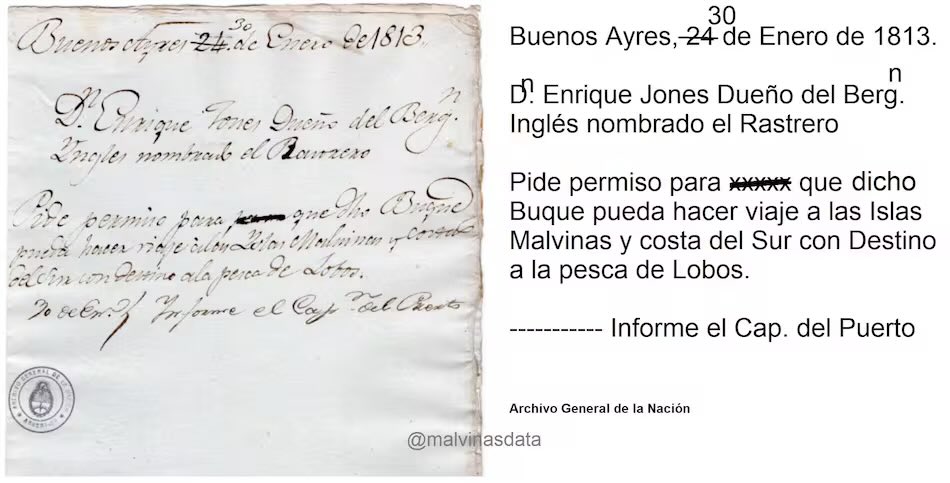 Buenos Ayres 24 30 de Enero de 1813.
Dn. Enrique Jones Dueño del Bergn.
Yngles nombrado el
Pide permiso para que dho Buque
pueda hacer viaje a las Yslas Malvinas y costa
del Sur con destino a la pesca de Lobos.
30 de En.o Ynforme el Capn. del Puerto
30
Buenos Ayres, 24 de Enero de 1813.
n n
D. Enrique Jones Dueño del Berg.
Inglés nombrado el Rastrero
Pide permiso para xxxxx que dicho
Buque pueda hacer viaje a las Islas
Malvinas y costa del Sur con Destino
a la pesca de Lobos.
----------- Informe el Cap. del Puerto
Archivo General de la Nación
@malvinasdata